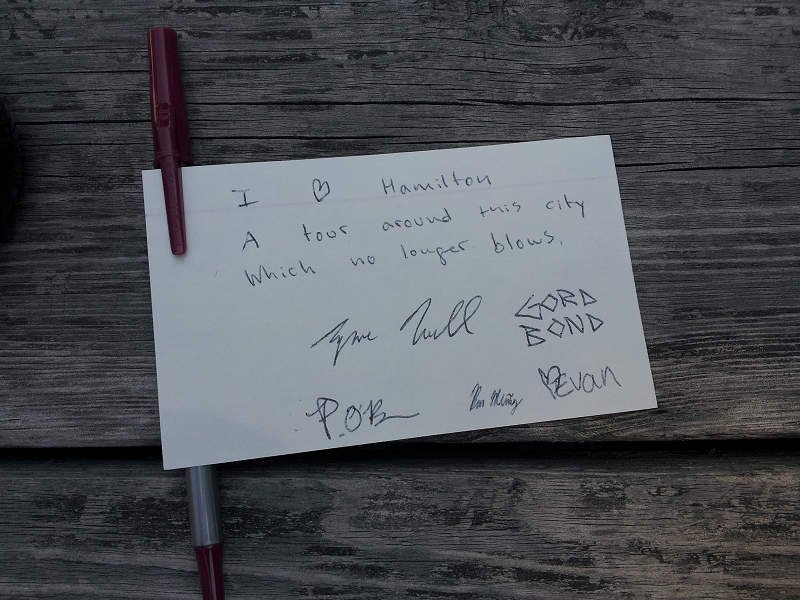 I ♡ Hamilton
A tour around this city
Which no longer blows.
GORD
BOND
P.O'B
♡Evan